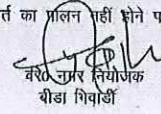 र्त का पालन नहीं होने प
वरि० नगर नियोजक
बीडा भिवाडी